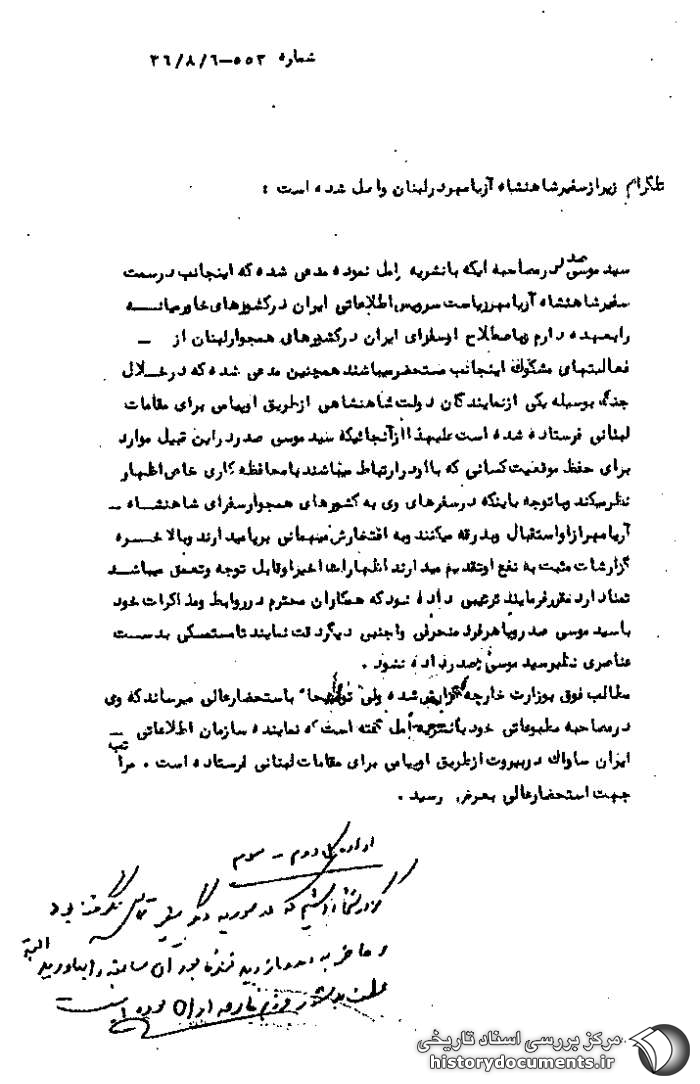 شماره ۵۵۲-۳۶/۸/۶
تلگرام زیر از سفیر شاهنشاه آریامهر در لبنان واصل شده است :
سید موسی صدر در مصاحبه ایکه با نشریه امل نموده مدعی شده که اینجانب در سمت
سفیر شاهنشاه آریامهر ریاست سرویس اطلاعاتی ایران در کشورهای خاورمیانــه
را بعهده دارم وباصطلاح او سفرای ایران در کشورهای همجوار لبنان از –
فعالیتهای مشکوک اینجانب مستحضر میباشند همچنین مدعی شده که در خــلال
جنگ بوسیله یکی از نمایندگان دولت شاهنشاهی از طریق او پیامی برای مقامات
لبنانی فرستاده شده است علیهذا از آنجائیکه سید موسی صدر در این قبیل موارد
برای حفظ موقعیت کسانی که با او در ارتباط میباشند با محافظه کاری خاص اظهار
نظر میکند وبا توجه باینکه در سفرهای وی به کشورهای همجوار سفرای شاهنشــاه –
آریامهر از او استقبال وبدرقه میکنند وبه افتخارش میهمانی برپا میدارند وبالاخــره
گزارشات مثبت به نفع او تقدیم میدارند اظهارات اخیر او قابل توجه وتعمق میباشــد
تمنا دارد مقرر فرمایند ترتیبی داده شود که همکاران محترم در روابط ومذاکرات خود
با سید موسی صدر ویا هر فرد منحرفی واجنبی دیگر دقت نمایند تا مستمسکی بدســت
عناصری نظیر سید موسی صدر داده نشود .
مطالب فوق بوزارت خارجه گزارش شده ولی توضیحا" باستحضار عالی میرساند که وی
در مصاحبه مطبوعاتی خود با نشریه امل گفته است که نماینده سازمان اطلاعاتی –
ایران ساواک در بیروت از طریق او پیامی برای مقامات لبنانی فرستاده است . مراتب
جهت استحضار عالی بعرض رسید .
اداره کل دوم – سوم
که در سوریه دیگر سفیر تماس نگرفته بود
البته
مرکز بررسی اسناد تاریخی
historydocuments.ir